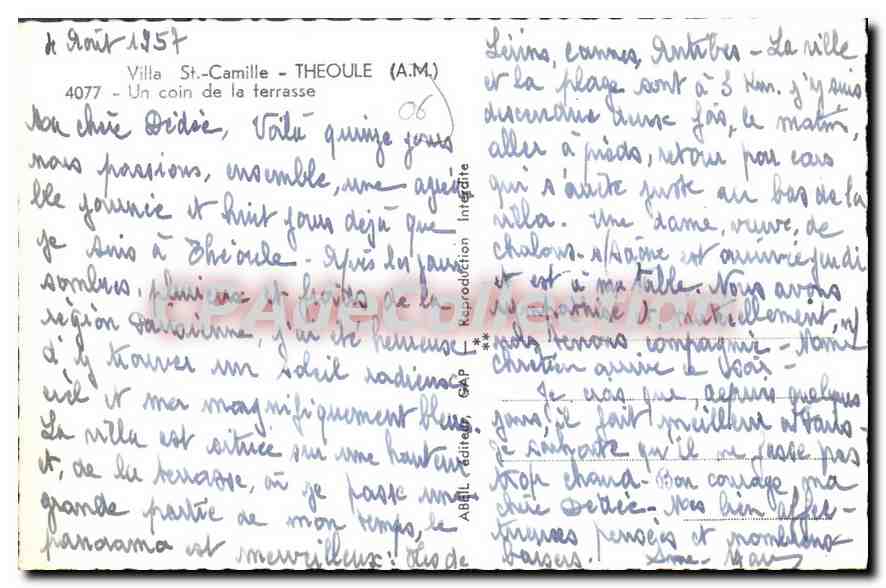 4 Août 1957
Villa St.-Camille - THEOULE (A.M.)
4077 - Un coin de la terrasse
06
Ma chère Dédée, Voilà quinze jours
nous passions, ensemble, une agréa-
ble journée et huit jours déjà que
je suis à Théoule - Après les jours
sombres, pluvieux et froids de la
région Parisienne, j'ai été heureuse
d'y trouver un soleil radieux,
ciel et mer magnifiquement bleus.
La villa est située sur une hauteur
et, de la terrasse, où je passe une
grande partie de mon temps, le
panorama est merveilleux : Iles de
ABEIL éditeur, GAP - Reproduction Interdite
Lérins, Cannes, Antibes - La ville
et la plage sont à 3 Km. j'y suis
descendue deux fois, le matin,
aller à pieds, retour par cars
qui s'arrête juste au bas de la
villa. Une dame, veuve, de
Chalons s/Saône est arrivée jeudi
et est à ma table. Nous avons
sympathisé mutuellement, et
nous tenons compagnie -
Christian arrive ce soir -
Je crois que, depuis quelques
jours, il fait meilleur à Paris -
je souhaite qu'il ne fasse pas
trop chaud - Bon courage, ma
chère Dédée - Mes bien affec-
tueuses pensées et nombreux
baisers.
CPADeCollection